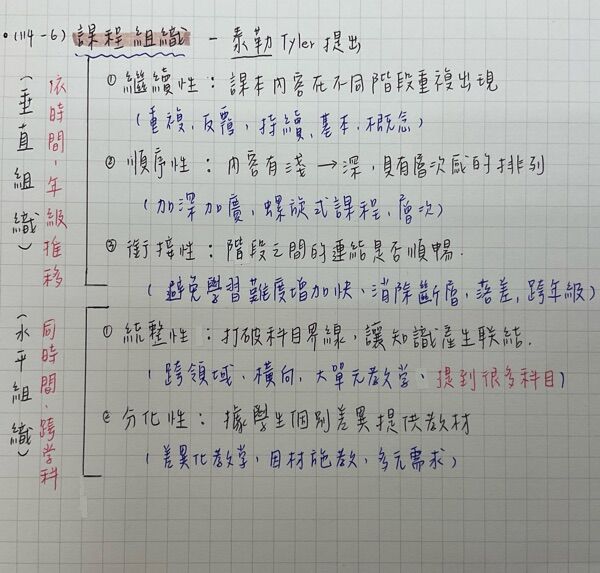 •(114-6) 課程組織 - 泰勒 Tyler 提出
(垂直組織)
依時間,年級推移
① 繼續性:課本內容在不同階段重複出現
(重複,反覆,持續,基本,概念)
② 順序性:內容有淺→深,具有層次感的排列
(加深加廣,螺旋式課程,層次)
③ 銜接性:階段之間的連結是否順暢.
(避免學習難度增加快、消除斷層,落差,跨年級)
(水平組織)
同時間,跨学科
① 統整性:打破科目界線,讓知識產生联結.
(跨領域、橫向,大單元教学,提到很多科目)
② 分化性:據學生個別差異提供教材
(差異化教学,因材施教,多元需求)